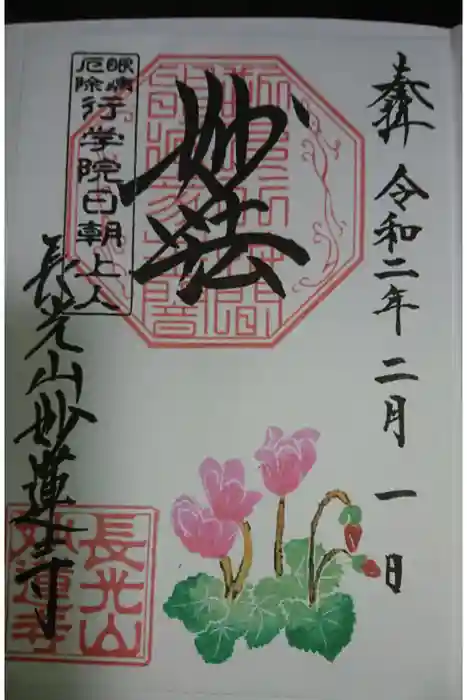 奉拝 令和二年二月一日
妙法
眼病
厄除
行学院日朝上人
長光山妙蓮寺
長光山
妙蓮寺